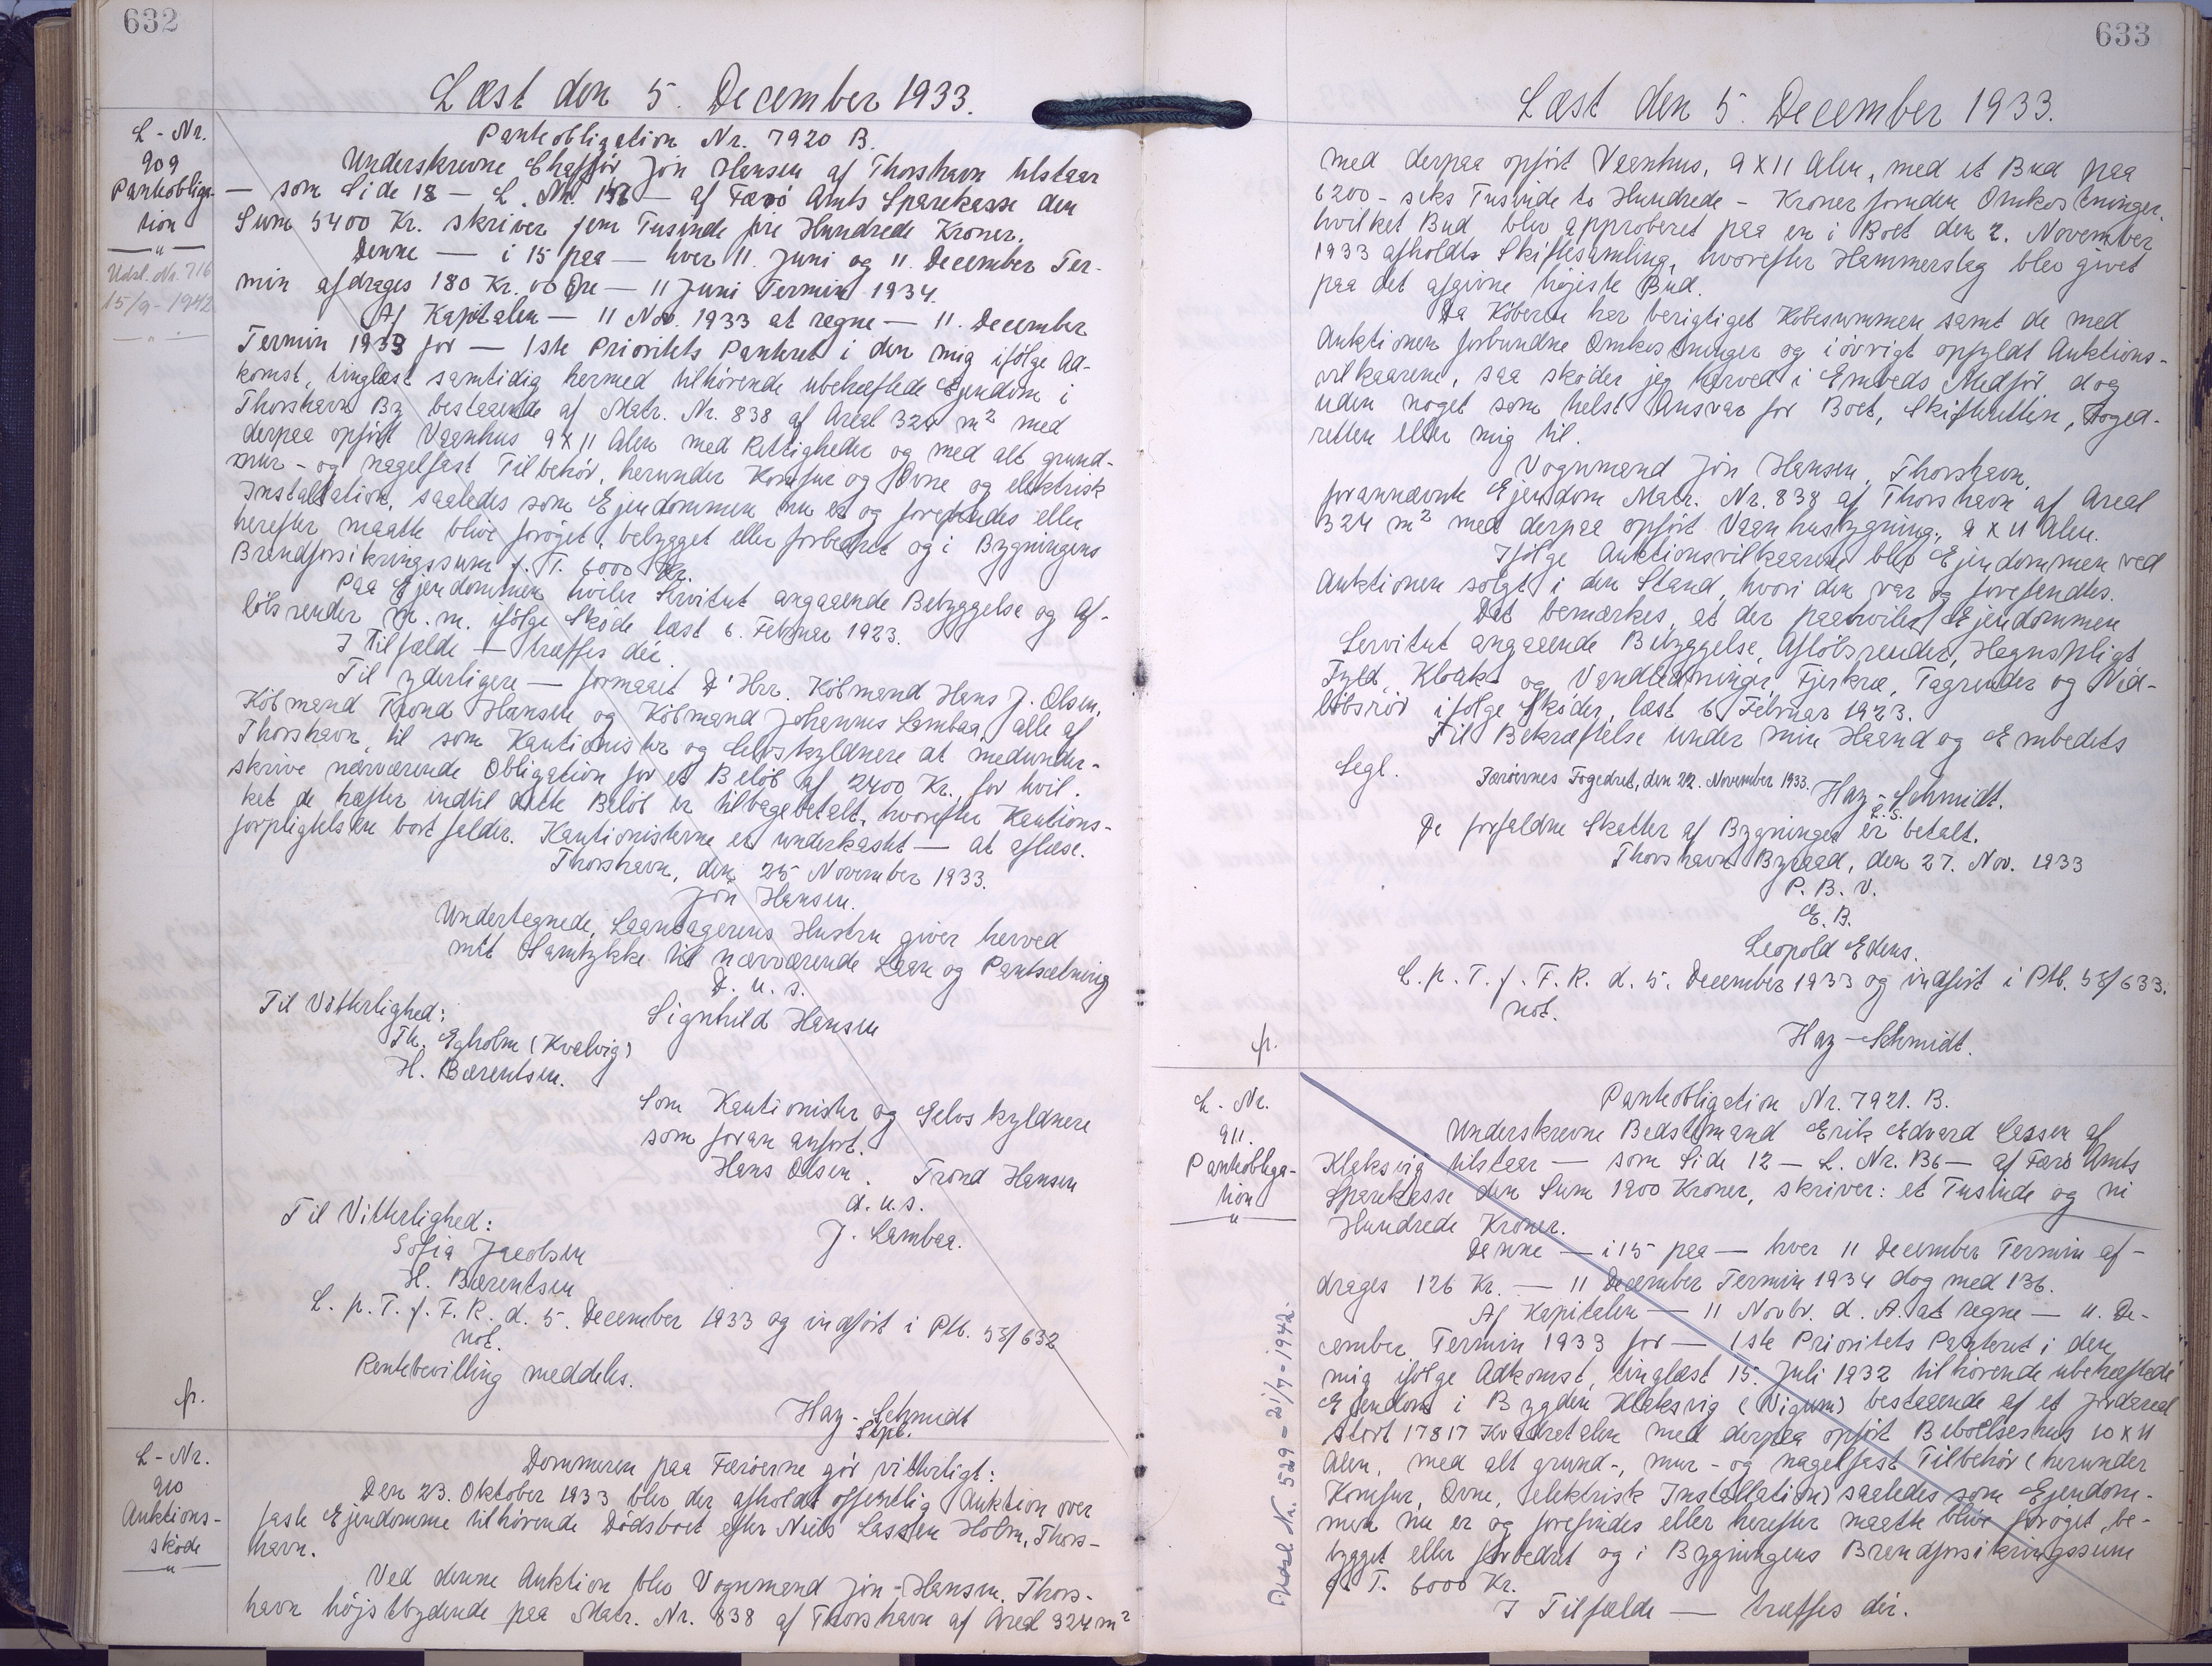 632
Læst den 5. December 1933.
L-Nr.
909
Panteobliga-
tion
Udsl. Nr. 716
15/9-1942
Panteobligation Nr. 7920 B.
Underskrevne Chafför Jón Hansen af Thorshavn tilstaar
— som Side 12 — L. Nr. — af Færö Amts Sparekasse den
Sum 5400 Kr. skriver fem Tusinde fire Hundrede Kroner.
Denne — i 15 paa — hver 11. Juni og 11. December Ter-
min afdrages 180 Kr. 00 Øre — 11 Juni Termin 1934.
Af Kapitalen — 11 Nov. 1933 at regne — 11. December
Termin 1933 for — 1ste Prioritets Panteret i den mig ifölge Ad-
komst, tinglæst samtidig hermed tilhörende ubehæftede Ejendom i
Thorshavn By bestaaende af Matr. Nr. 838 af Areal 324 m² med
derpaa opfört Vaanhus 9 x 11 Alen med Rettigheder og med alt grund-
mur- og nagelfast Tilbehör, herunder Komfur og Ovne og elektrisk
Installation, saaledes som Ejendommen nu er og forefindes eller
herefter maatte blive foröget, bebygget eller forbedret og i Bygningens
Brandforsikringssum f. T. 6000 Kr.
Paa Ejendommen hviler Servitut angaaende Bebyggelse og Af-
lölsrender m. m. ifölge Sköde læst 6. Februar 1923.
I Tilfælde — træffes dér.
Til yderligere — formaaet D'Hrr. Köbmand Hans J. Olsen,
Köbmand Trond Hansen og Köbmand Johannes Lambaa, alle af
Thorshavn, til som Kautionister og Selvskyldnere at medunder-
skrive nærværende Obligation for et Belöb af 2400 Kr., for hvil-
ket de hæfter indtil dette Belöb er tilbagebetalt, hvorefter Kautions-
forpligtelsen bortfalder. Kautionisterne er underkastet — at aflæse.
Thorshavn, den 25 November 1933.
Jón Hansen.
Undertegnede, Laantagerens Hustru giver herved
mit Samtykke til nærværende Laan og Pantsætning
D. u. s.
Til Vitterlighed: Signhild Hansen
Th. Egholm (Kvalvig)
H. Bærentsen.
Som Kautionister og Selvskyldnere
som foran anfört.
Hans Olsen. Trond Hansen
d. u. s.
Til Vitterlighed: J. Lambaa.
Sofia Jacobsen
H. Bærentsen
L. p. T. f. F. R. d. 5. December 1933 og indfört i Ptb. 58/632
not.
Rentebevilling meddeles.
fr.
Hay-Schmidt
Spb.
L-Nr.
910
Auktions-
sköde
Dommeren paa Færöerne gör vitterligt:
Den 23. Oktober 1933 blev der afholdt offentlig Auktion over
faste Ejendomme tilhörende Dödsboet efter Niels Lassen Holm, Thors-
havn.
Ved denne Auktion blev Vognmand Jón Hansen, Thors-
havn höjstbydende paa Matr. Nr. 838 af Thorshavn af Areal 324 m²
633
Læst den 5. December 1933.
med derpaa opfört Vaanhus, 9 x 11 Alen, med et Bud paa
6200 - seks Tusinde to Hundrede - Kroner foruden Omkostninger,
hvilket Bud blev approberet paa en i Boet den 2. November
1933 afholdt Skiftesamling, hvorefter Hammerslag blev givet
paa det afgivne höjeste Bud.
Da Köberen har berigtiget Köbesummen samt de med
Auktionen forbundne Omkostninger og i övrigt opfyldt Auktions-
vilkaarene, saa sköder jeg herved i Embeds Medför, dog
uden noget som helst Ansvar for Boet, Skifteretten, Foged-
retten eller mig til.
Vognmand Jón Hansen, Thorshavn,
forannævnte Ejendom Matr. Nr. 838 af Thorshavn af Areal
324 m² med derpaa opfört Vaanhusbygning, 9 x 11 Alen.
Ifölge Auktionsvilkaarene blev Ejendommen ved
Auktionen solgt i den Stand, hvori den var og forefandtes.
Det bemærkes, at der paahviler Ejendommen
Servitut angaaende Bebyggelse, Aflöbsrender, Hegnspligt,
Fyld, Kloak- og Vandledninger, Fjerkræ, Tagrender og Ned-
löbsrör ifölge Sköder, læst 6. Februar 1923.
Til Bekræftelse under min Haand og Embedets
Segl.
Færöernes Fogedret, den 22. November 1933.
Hay-Schmidt.
L. S.
De forfaldne Skatter af Bygningen er betalt.
Thorshavn Byraad, den 27. Nov. 1933
P. B. V.
E. B.
Leopold Edens.
L. p. T. f. F. R. d. 5. December 1933 og indfört i Ptb. 58/633.
not.
fr.
Hay-Schmidt.
L-Nr.
911.
Panteobliga-
tion
Udsl. Nr. 529-21/7-1942.
Panteobligation Nr. 7921. B.
Underskrevne Bedstemand Erik Edvard Lassen af
Klaksvig tilstaar — som Side 12 — L. Nr. B6 — af Færö Amts
Sparekasse den Sum 1900 Kroner, skriver: et Tusinde og ni
Hundrede Kroner.
Denne — i 15 paa — hver 11 December Termin af-
drages 126 Kr. — 11 December Termin 1934 dog med 136.
Af Kapitalen — 11 Novbr. d. A. at regne — 11. De-
cember Termin 1933 for — 1ste Prioritets Panteret i den
mig ifölge Adkomst, tinglæst 15. Juli 1932 tilhörende ubehæftede
Ejendom i Bygden Klaksvig (Vigum) bestaaende af et Jordareal
stort 17817 Kvadratalen med derpaa opfört Beboelseshus 10 x 11
Alen, med alt grund-, mur- og nagelfast Tilbehör (herunder
Komfur, Ovne, elektrisk Installation) saaledes som Ejendom-
men nu er og forefindes eller herefter maatte blive foröget, be-
bygget eller forbedret og i Bygningens Brandforsikringssum
f. T. 6000 Kr.
I Tilfælde — træffes dér.